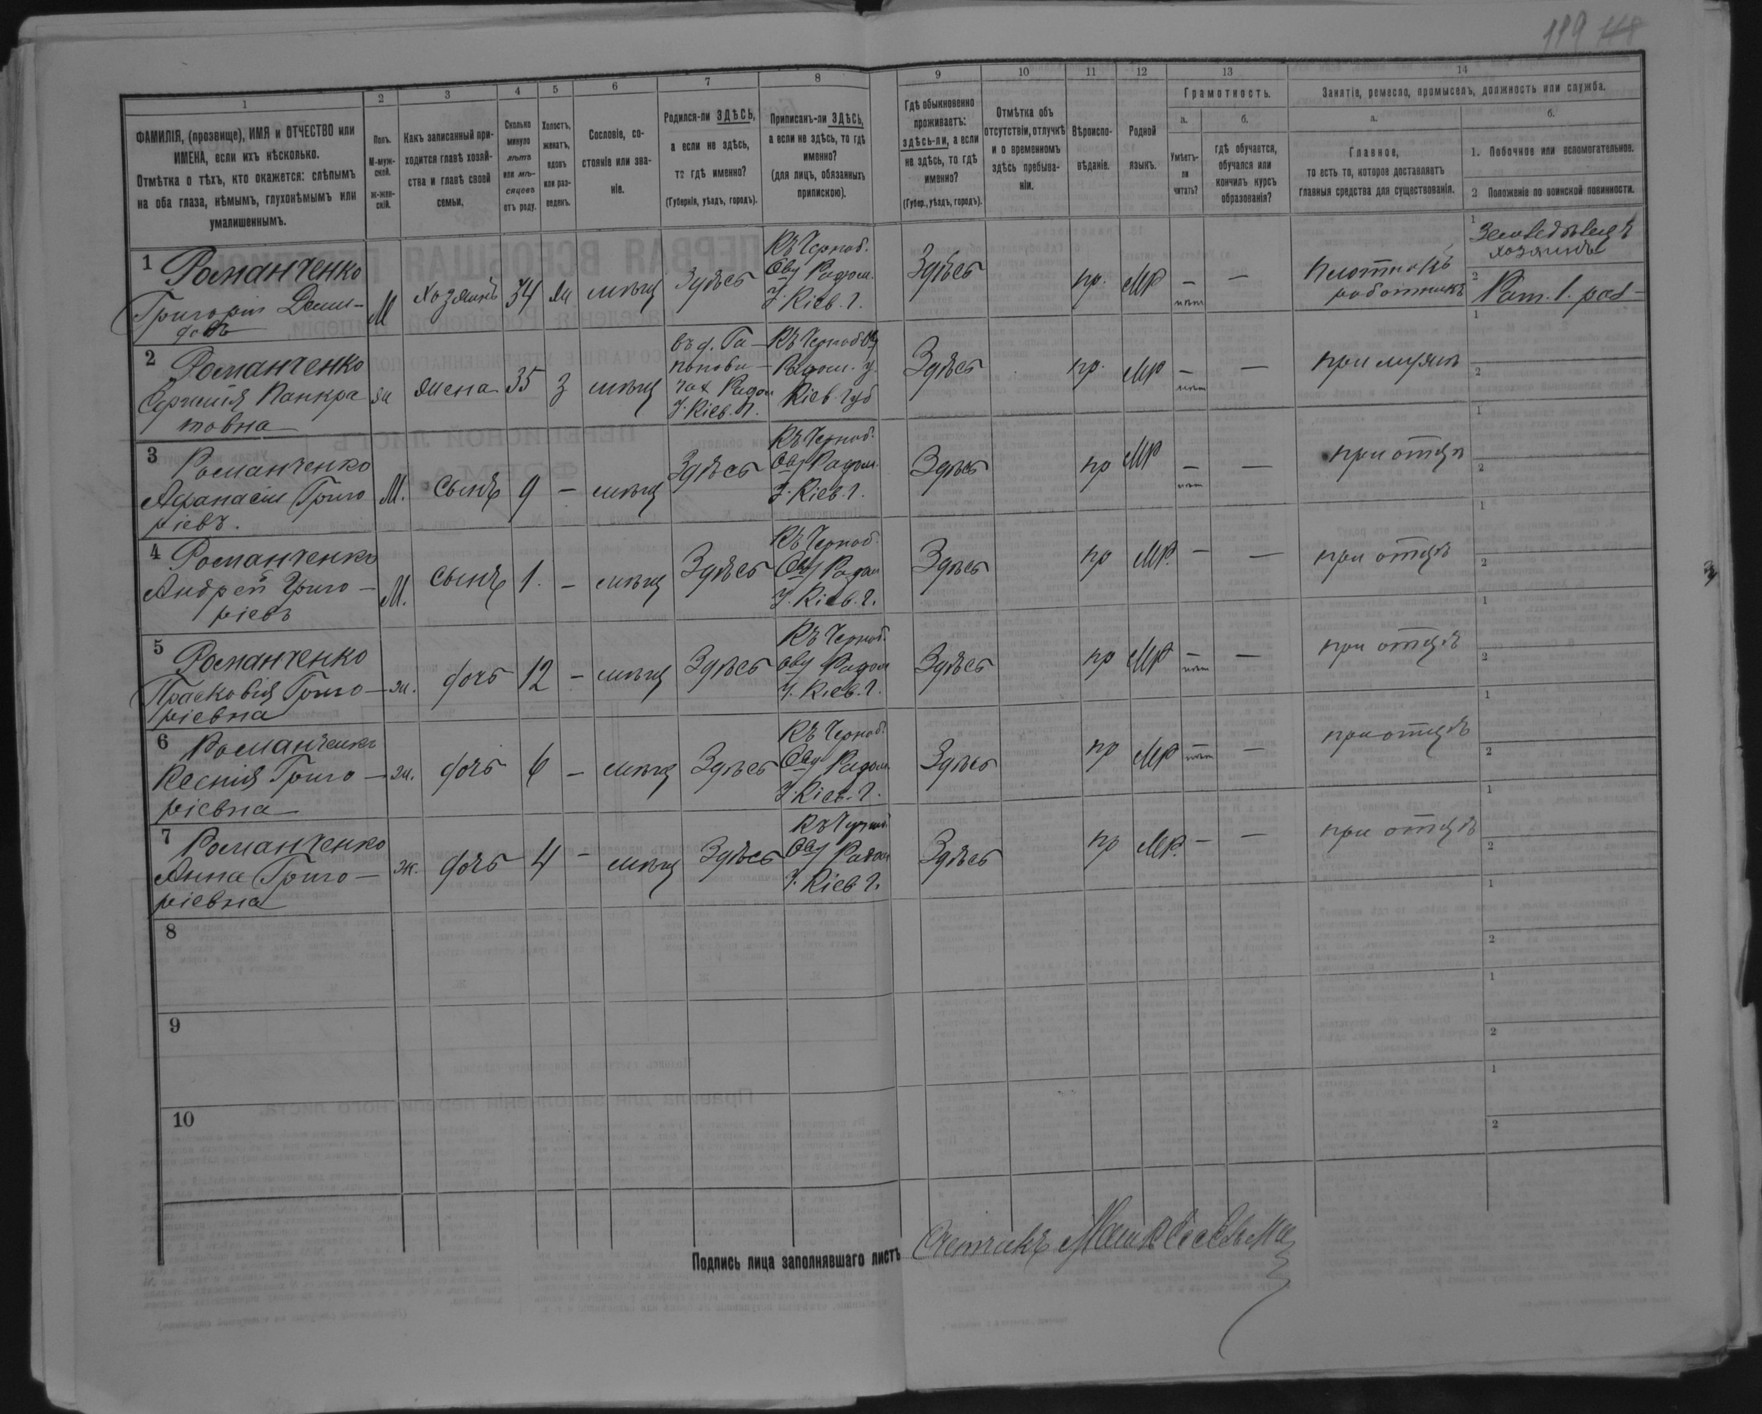 119 118
1
2
3
4
5
6
7
8
9
10
11
12
13
14
ФАМИЛІЯ, (прозвище), ИМЯ и ОТЧЕСТВО или
ИМЕНА, если ихъ нѣсколько.
Отмѣтка о тѣхъ, кто окажется: слѣпымъ
на оба глаза, нѣмымъ, глухонѣмымъ или
умалишеннымъ.
Полъ.
М-муж-
ской.
ж-жен-
скій.
Какъ записанный при-
ходится главѣ хозяй-
ства и главѣ своей
семьи.
Сколько
минуло
лѣтъ
или мѣ-
сяцевъ
отъ роду.
Холостъ,
женатъ,
вдовъ
или раз-
веденъ.
Сословіе, со-
стояніе или зва-
ніе.
Родился-ли ЗДѢСЬ,
а если не здѣсь,
то гдѣ именно?
(Губернія, уѣздъ, городъ).
Приписанъ-ли ЗДѢСЬ,
а если не здѣсь, то гдѣ
именно?
(для лицъ, обязанныхъ
припискою).
Гдѣ обыкновенно
проживаетъ:
здѣсь-ли, а если
не здѣсь, то гдѣ
именно?
(Губер., уѣздъ, городъ).
Отмѣтка объ
отсутствіи, отлучкѣ
и о временномъ
здѣсь пребыва-
ніи.
Вѣроиспо-
вѣданіе.
Родной
языкъ.
Грамотность.
а.
Умѣетъ-
ли
читать?
б.
гдѣ обучается,
обучался или
кончилъ курсъ
образованія?
Занятіе, ремесло, промыселъ, должность или служба.
а.
Главное,
то есть то, которое доставляетъ
главныя средства для существованія.
б.
1. Побочное или вспомогательное.
2 Положеніе по воинской повинности.
1 Романченко
Григорій Деми-
довъ
М хозяинъ 34 ж мѣщ Здѣсь
Къ Черноб.
Общ Радом.
У. Кіев. г.
Здѣсь
пр. МР — нѣт —
Плотникъ
работникъ
1
хозяинъ
2 Рат. 1. раз-
2 Романченко
Панкра
товна
ж жена 35 з мѣщ
въ д.
Радом
У. Кіев. г.
Къ Черноб. Об
Радом. у.
Кіев. Губ
Здѣсь
пр. МР — нѣт —
при мужѣ
1
2
3 Романченко
Афанасій Григо
ріевъ.
М. сынъ 9 — мѣщ Здѣсь
Къ Черноб.
Общ Радом
У. Кіев. г.
Здѣсь
пр МР — нѣт —
при отцѣ
1
2
4 Романченко
Андрей Григо-
ріевъ
М. сынъ 1. — мѣщ Здѣсь
Къ Черноб.
Общ Радом
У. Кіев. г.
Здѣсь
пр МР. — —
при отцѣ
1
2
5 Романченко
Прасковія Григо-
ріевна
ж. дочь 12 — мѣщ Здѣсь
Къ Черноб.
Общ Радом
У. Кіев. г.
Здѣсь
пр МР — нѣт —
при отцѣ
1
2
6 Романченко
Ксенія Григо-
ріевна
ж. дочь 6 — мѣщ Здѣсь
Къ Черноб.
Общ Радом
У. Кіев. г.
Здѣсь
пр МР — нѣт —
при отцѣ
1
2
7 Романченко
Анна Григо-
ріевна
ж. дочь 4 — мѣщ Здѣсь
Къ Черноб
Общ Радом
У. Кіев г.
Здѣсь
пр МР. — —
при отцѣ
1
2
8
1
2
9
1
2
10
1
2
Подпись лица заполнявшаго листъ Счетчикъ